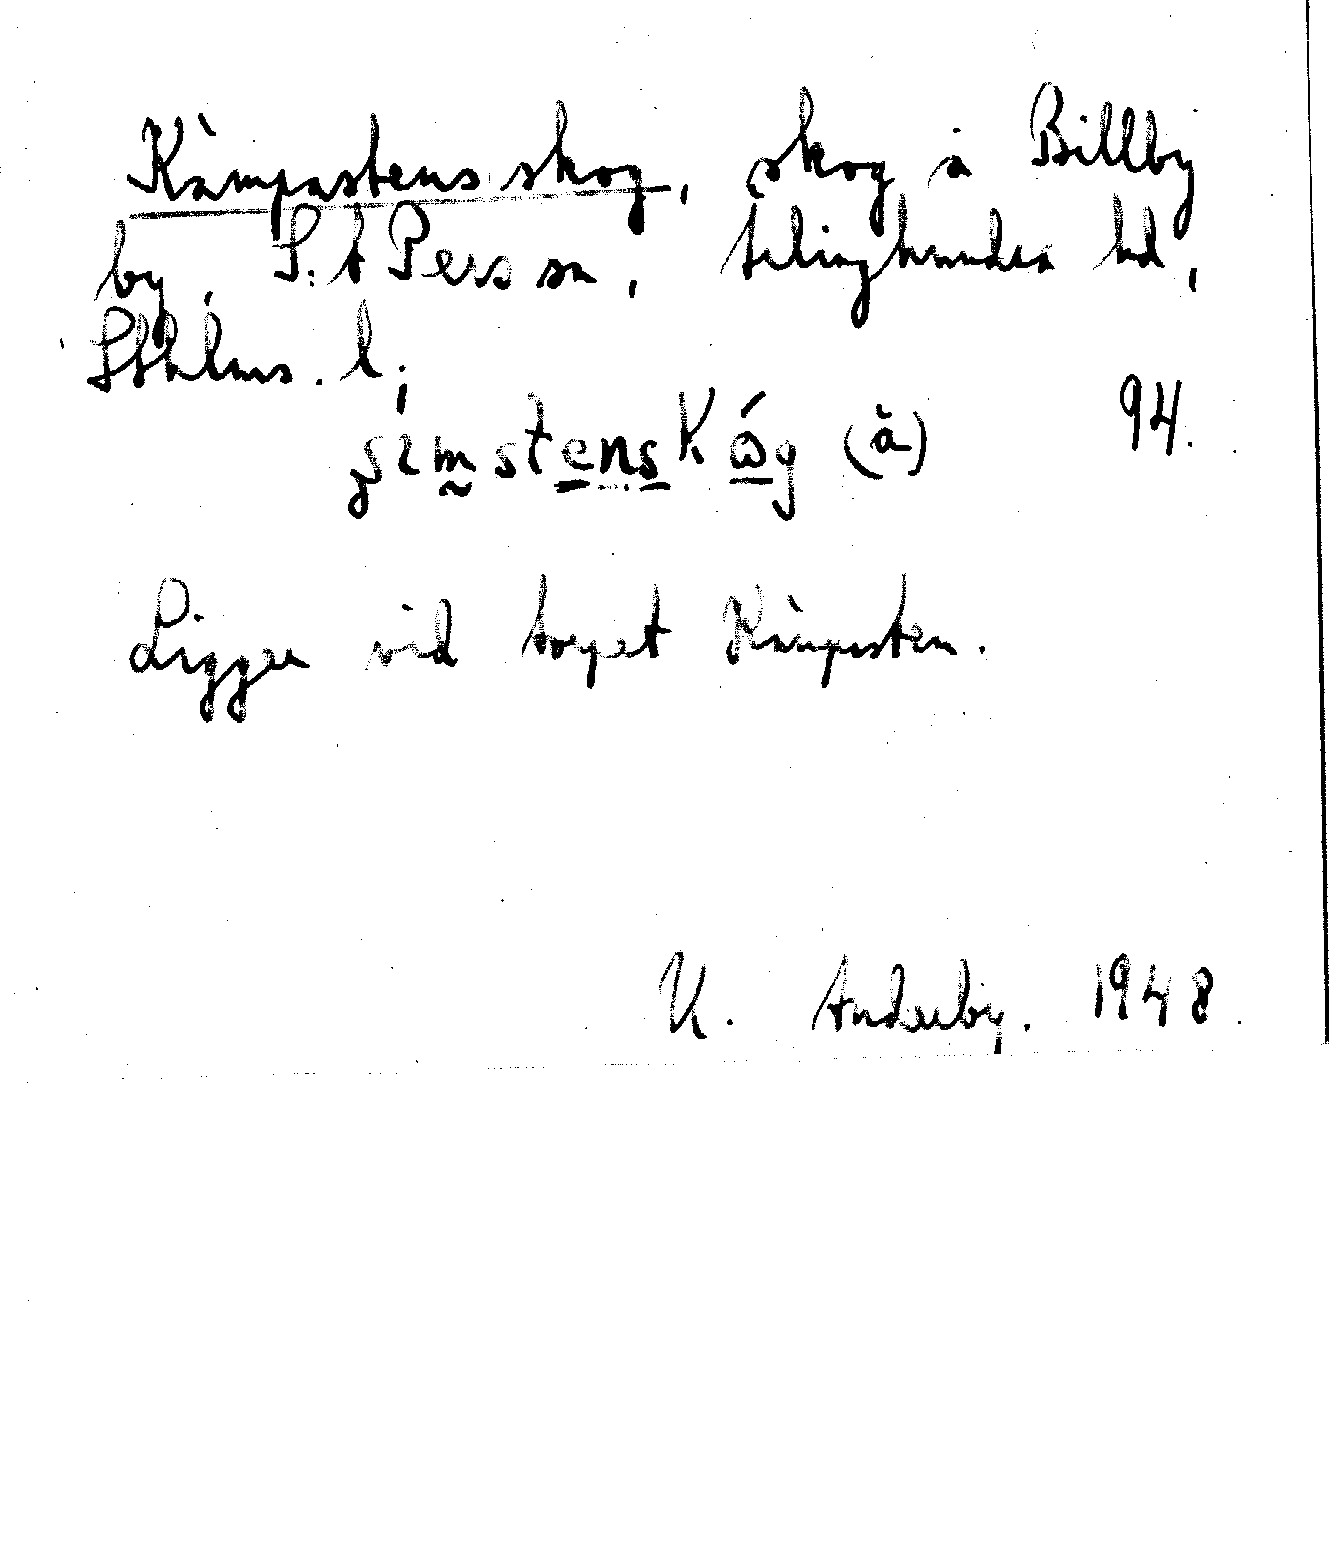 Kämpastensskog, skog å Billby
by, S:t Pers sn, Seminghundra hd,
Sthlms. l.
(å) 94.
Ligger vid torpet Kämpasten.
K. Anderby. 1948.